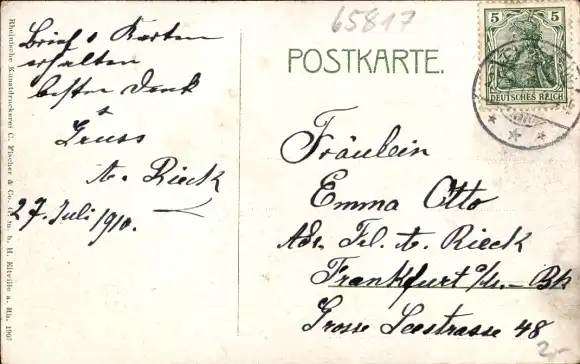 65817
Brief & Karten
erhalten
besten Dank
&
Gruss
A. Rieck
27. Juli 1910.
POSTKARTE.
5 5
DEUTSCHES REICH
Fräulein
Emma Otto
Adr. Frl. A. Rieck
Frankfurt a/M.-Bk
Grosse Seestrasse 48
2,-
Rheinische Kunstdruckerei C. Fischer & Co. G. m. b. H. Eltville a. Rh. 1907